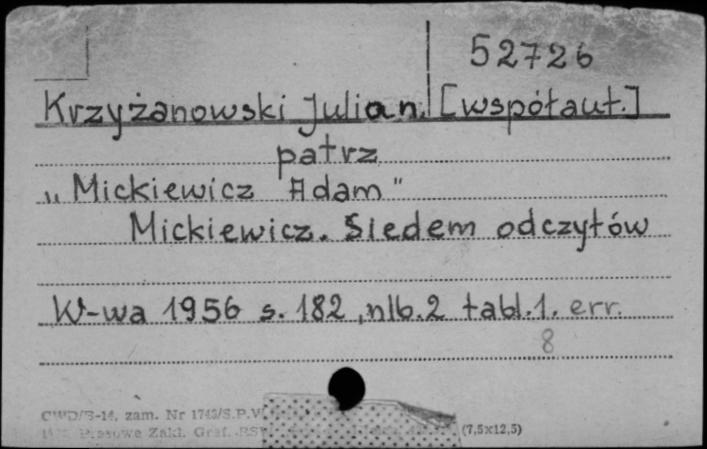 52726
Krzyżanowski Julian. [współaut.]
patrz
„Mickiewicz Adam"
Mickiewicz. Siedem odczytów
W-wa 1956 s. 182, nlb. 2 tabl. 1. err.
8
CWD/B-14, zam. Nr 1743/S.P.W.
Prasowe Zakł. Graf. RSW (7,5x12,5)